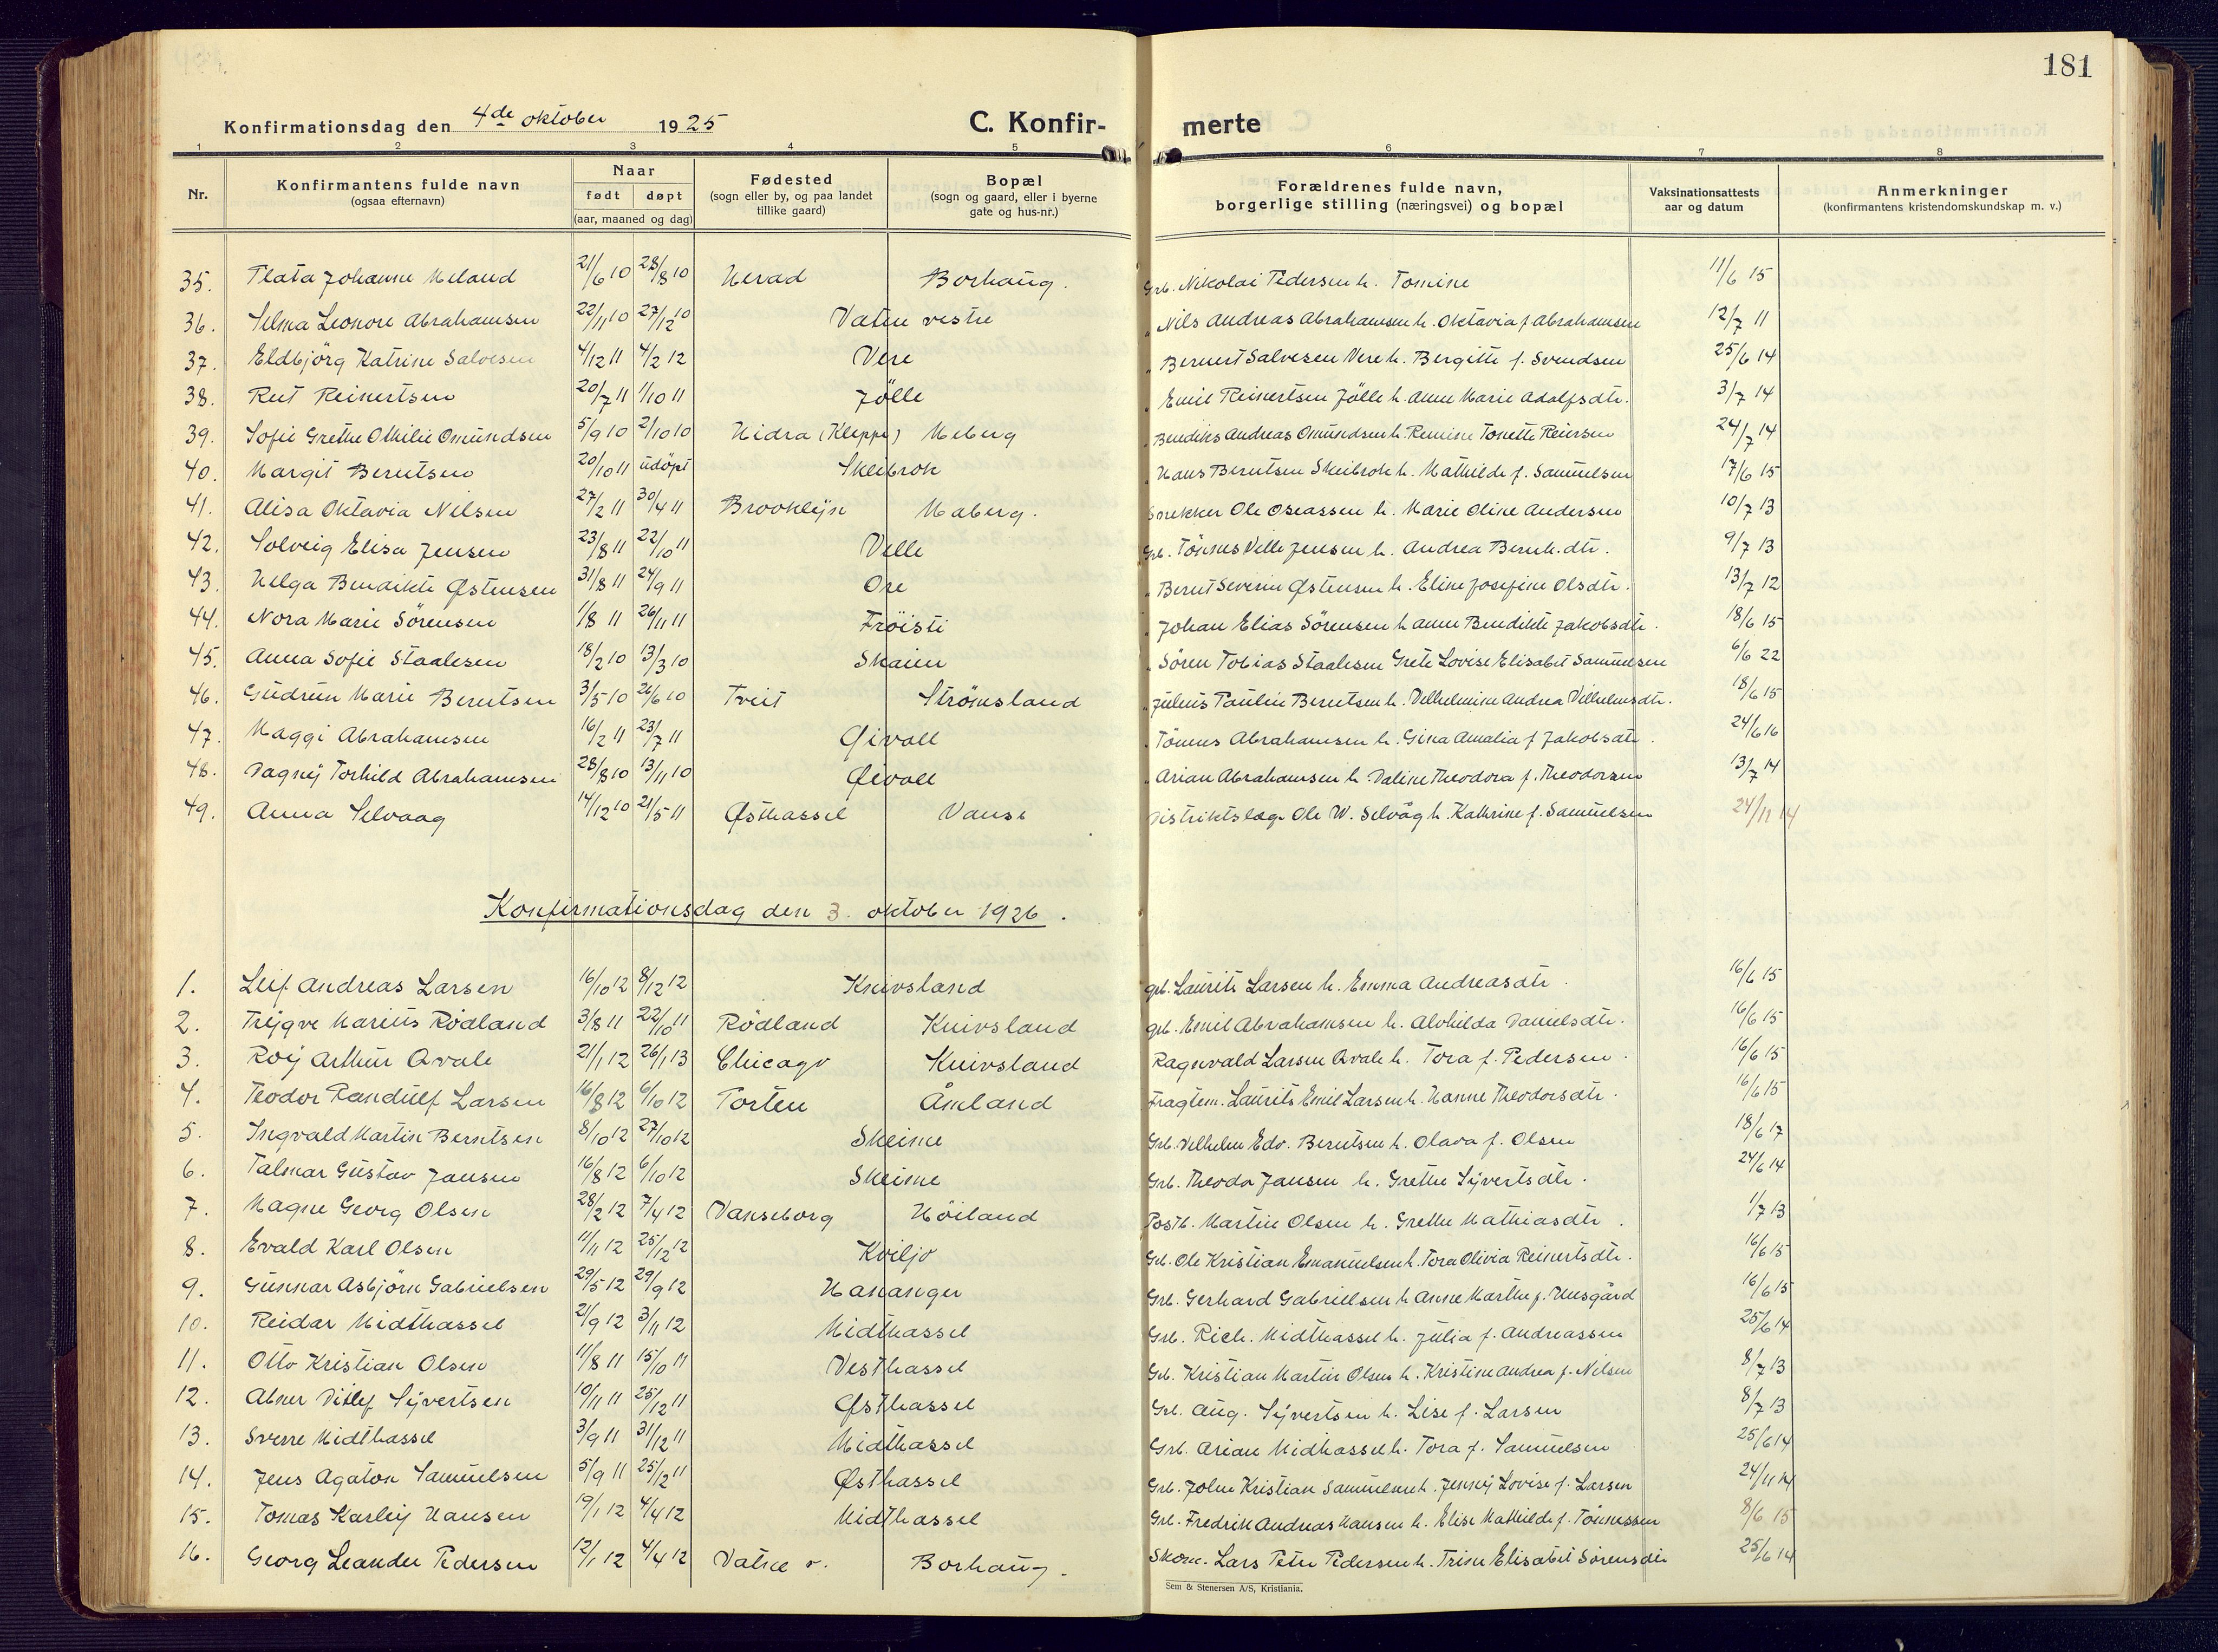 181
Konfirmationsdag den 4de oktober 1925 C. Konfir- merte
1 2 3 4 5 6 7 8
Nr. Konfirmantens fulde navn (ogsaa efternavn) Naar født døpt (aar, maaned og dag) Fødested (sogn eller by, og paa landet tillike gaard) Bopæl (sogn og gaard, eller i byerne gate og hus-nr.) Forældrenes fulde navn, borgerlige stilling (næringsvei) og bopæl Vaksinationsattests aar og datum Anmerkninger (konfirmantens kristendomskundskap m. v.)
35. Johanne Meland 21/6 10 28/8 10 Herad Borhaug. Grb. Nikolai Pedersen h. Tomine 11/6 15
36. Selma Leonore Abrahamsen 22/11 10 27/12 10 Vatne vestre " Nils Andreas Abrahamsen h. Oktavia f Abrahamsen 12/7 11
37. Eldbjörg Katrine Salvesen 4/12 11 4/2 12 Vere " Bernert Salvesen Vere h. Bergitte f. Svendsen 25/6 14
38. Rut Reinertsen 20/7 11 1/10 11 Jölle " Emil Reinertsen Jölle h. Anne Marie Adolfsdtr. 3/7 14
39. Sofie Grethe Othilie Omundsen 5/9 10 2/10 10 Hidra (Kleppe) Meberg " Bendiks Andreas Omundsen h. Remine Tonette Reiersen 24/7 14
40. Margit Berntsen 20/10 11 udöpt Skeibrok " Hans Berntsen Skeibrok h. Mathilde f. Samuelsen 17/6 15
41. Alisa Oktavia Nilsen 27/2 11 30/4 11 Brooklyn Maberg. Snekker Ole Oseassen h. Marie Oline Andersen 10/7 13
42. Solveig Elisa Jensen 23/8 11 22/10 11 Velle Grb. Tönnes Velle Jensen h. Andrea Bernh.dtr. 9/7 13
43. Helga Bendikte Østensen 31/8 11 24/9 11 Ore " Bernt Severin Østensen h. Eline Josefine Olsdtr. 13/7 12
44. Nora Marie Sörensen 1/8 11 26/11 11 Fröisti " Johan Elias Sörensen h Anne Bendikte Jakobsdtr. 18/6 15
45. Anna Sofie Staalesen 18/2 10 13/3 10 Skaien " Sören Tobias Staalesen Grete Lovise Elisabet Samuelsen 6/6 22
46. Gudrun Marie Berntsen 3/5 10 26/6 10 Tveit Strömsland " Julius Paulin Berntsen h. Vilhelmine Andrea Vilhelmsdtr. 18/6 15
47. Maggi Abrahamsen 16/2 11 23/7 11 Øivoll " Tönnes Abrahamsen h. Gina Amalia f Jakobsdtr. 24/6 16
48. Dagny Torhild Abrahamsen 28/8 10 13/11 10 Øivoll " Arian Abrahamsen h. Valine Theodora f. Theodorsen 13/7 14
49. Anna Selvaag 14/12 10 21/5 11 Østhassel Vanse Distriktslæge Ole W. Selvåg h. Kathrine f. Samuelsen 24/11 14
Konfirmationsdag den 3. oktober 1926.
1. Leif Andreas Larsen 16/10 12 8/12 12 Knivsland grb. Laurits Larsen h. Emma Andreasdtr. 16/6 15
2. Trygve Marius Rödland 3/8 11 22/10 11 Rödland Knivsland grb. Emil Abrahamsen h. Alvhilda Danielsdtr. 16/6 15
3. Roy Arthur Avale 21/1 12 26/1 13 Chicago Knivsland Ragnvald Larsen Avale h. Tora f. Pedersen. 16/6 15
4. Teodor Randulf Larsen 16/8 12 6/10 12 Torten Åmland Fragtem. Laurits Emil Larsen h. Hanne Theodorsdtr. 16/6 15
5. Ingvald Martin Berntsen 8/10 12 27/10 12 Skeime Grb. Vilhelm Edv. Berntsen h. Olava f. Olsen 18/6 17
6. Talmar Gustav Jansen 16/8 12 6/10 12 Skeime Grb. Theodor Jansen h. Grethe Syvertsdtr. 24/6 14
7. Magne Georg Olsen 28/2 12 7/4 12 Vanseborg Höiland Postb. Martin Olsen h. Grethe Mathiasdtr. 1/7 13
8. Evald Karl Olsen 11/11 12 25/12 12 Kviljo Grb. Ole Kristian Emanuelsen h. Tora Olivia Reinertsdtr. 16/6 15
9. Gunnar Asbjörn Gabrielsen 29/5 12 29/9 12 Hananger Grb. Gerhard Gabrielsen h Anne Marthe f. Huseård 16/6 15
10. Reidar Midthassel 21/9 12 3/11 12 Midthassel Grb. Rich. Midthassel h. Julia f. Andreassen 25/6 14
11. Otto Kristian Olsen 11/8 11 15/10 11 Vesthassel Grb. Kristian Martin Olsen h. Kristine Andrea f. Nilsen 8/7 13
12. Abner Ditlef Syvertsen 10/11 11 25/12 11 Østhassel Grb. Aug. Syvertsen h. Lise f. Larsen 8/7 13
13. Sverre Midthassel 3/9 11 31/12 11 Midthassel Grb. Arian Midthassel h. Tora f. Samuelsen 25/6 14
14. Jens Agaton Samuelsen 5/9 11 25/12 11 Østhassel Grb. John Kristian Samuelsen h. Jenny Lovise f. Larsen 24/11 14
15. Tomas Karley Hansen 19/1 12 4/4 12 Midthassel Grb. Fredrik Andreas Hansen h. Elise Mathilde f. Tönnessen 8/6 15
16. Georg Leander Pedersen 12/1 12 4/4 12 Vatne v. Borhaug. Skom. Lars Peter Pedersen h. Trine Elisabet Sörensdtr 25/6 14
Sem & Stenersen A/S, Kristiania.